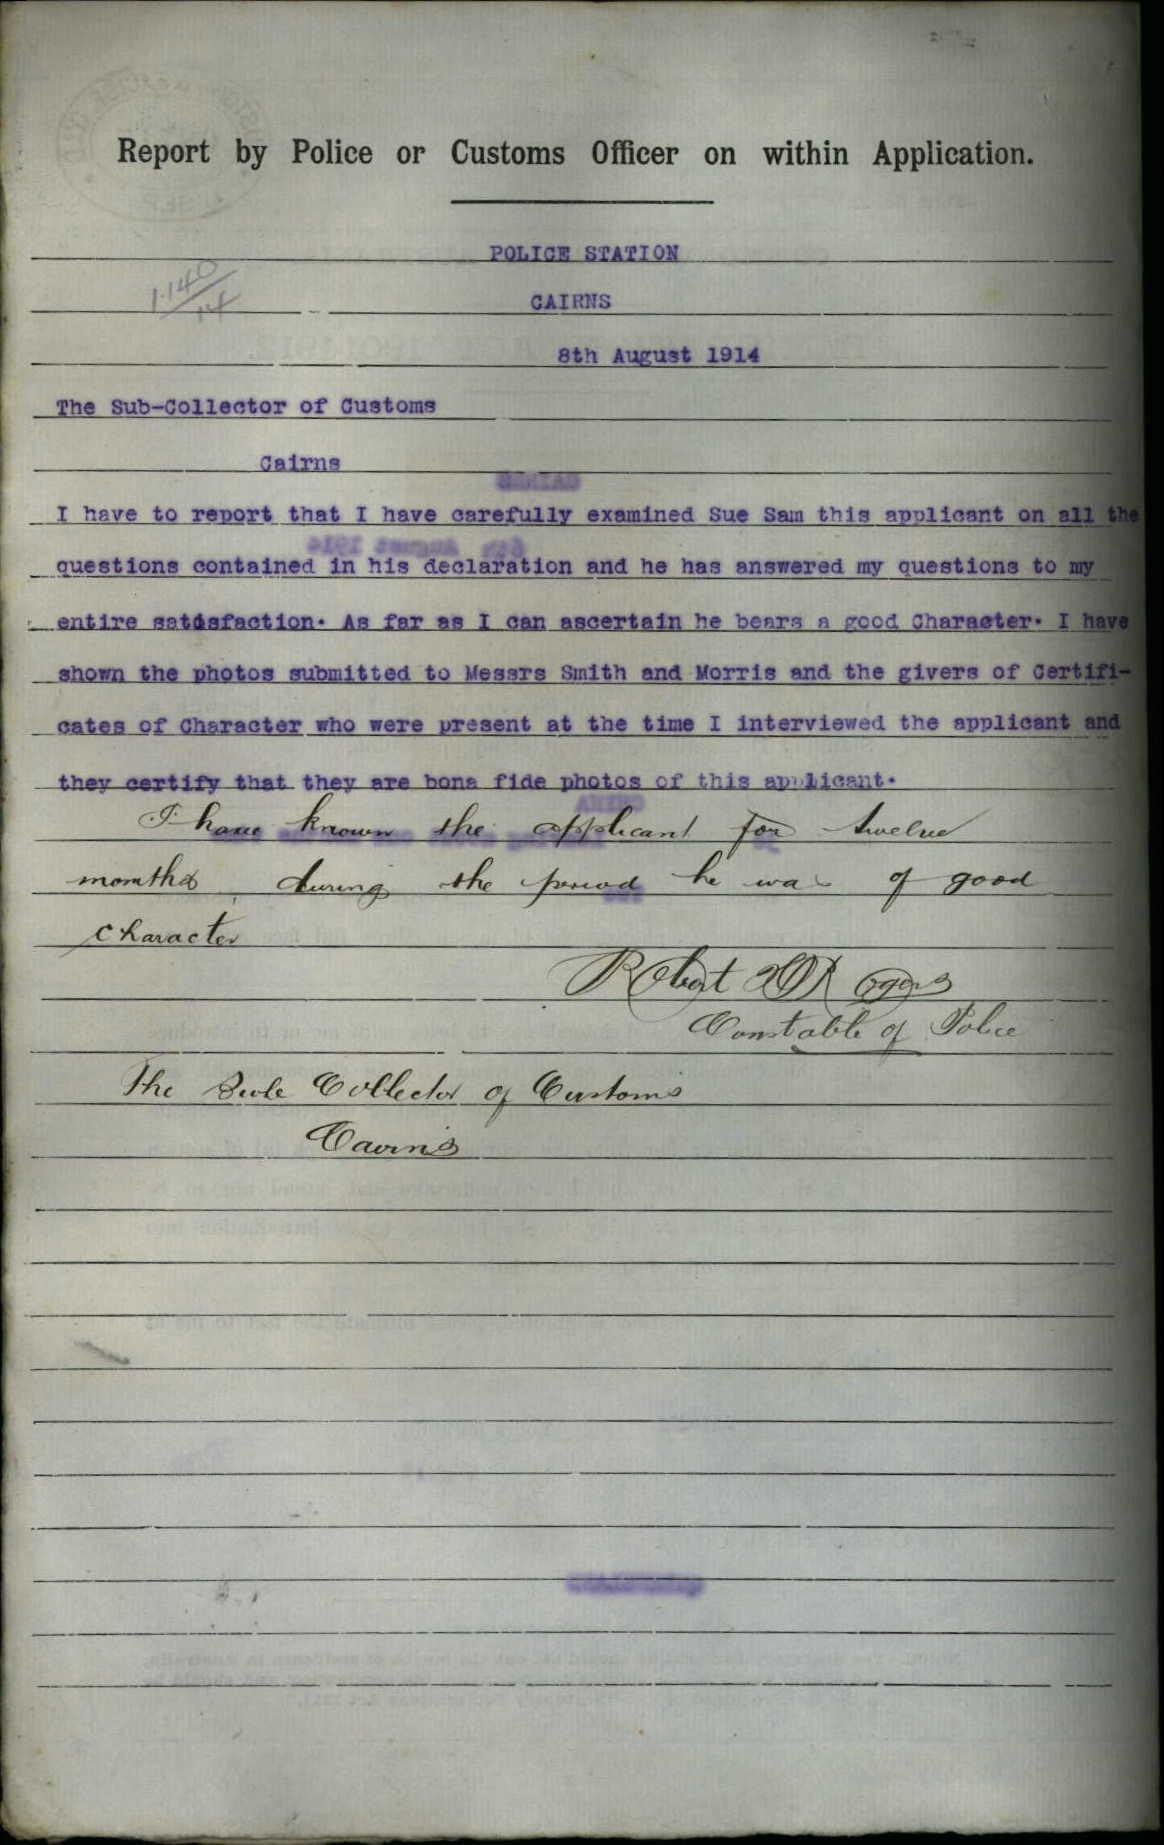 Report by Police or Customs Officer on within Application.
POLICE STATION
1·140/14
CAIRNS
8th August 1914
The Sub-Collector of Customs
Cairns
I have to report that I have carefully examined Sue Sam this applicant on all the
questions contained in his declaration and he has answered my questions to my
entire satisfaction. As far as I can ascertain he bears a good Character. I have
shown the photos submitted to Messrs Smith and Morris and the givers of Certifi-
cates of Character who were present at the time I interviewed the applicant and
they certify that they are bona fide photos of this applicant.
I have known the applicant for twelve
months, during the period he was of good
character
Robert Rogers
Constable of Police
The Sub Collector of Customs
Cairns